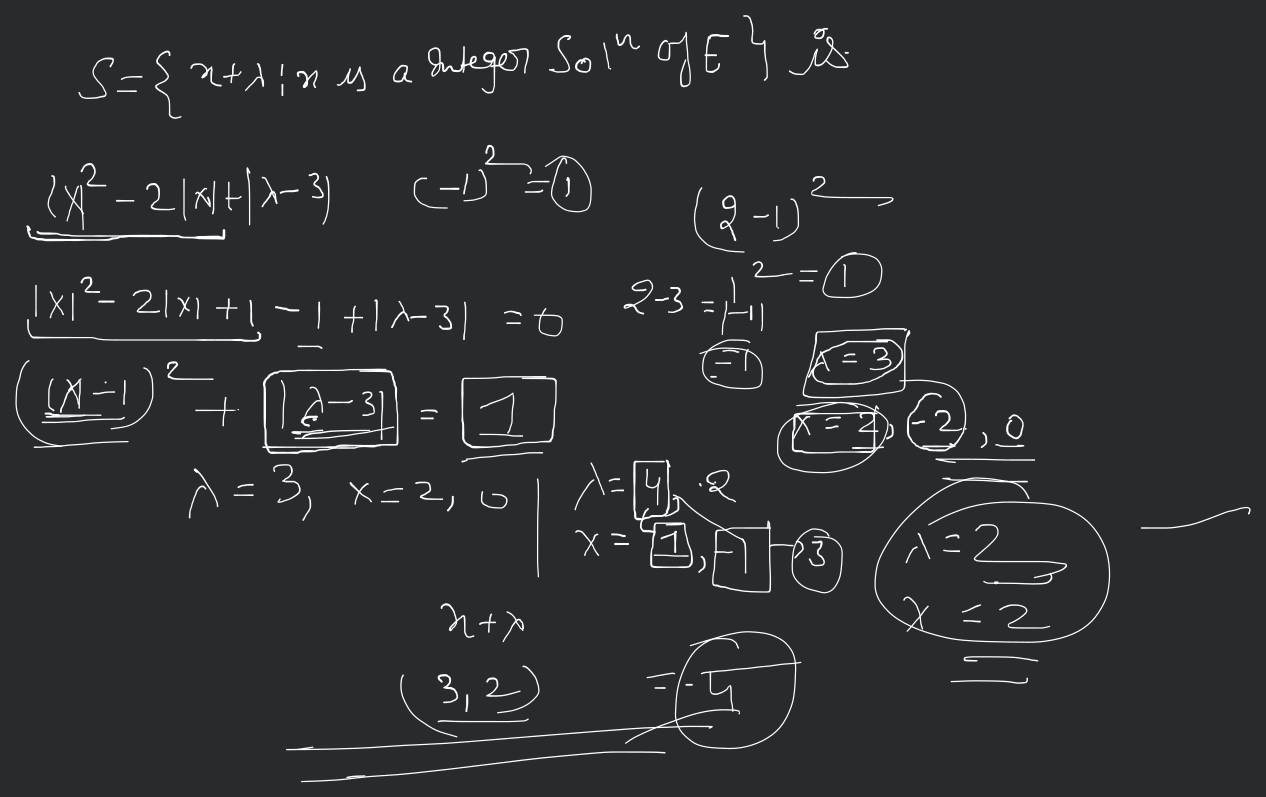 S={x+λ; x is a Integer Solⁿ of E} is
(|x|² - 2|x|+|λ-3| (-1)² = 1
(2-1)²
|x|² - 2|x| + 1 - 1 + |λ-3| = 0
2-3 = |-1|² = 1
-1
λ = 3
(|x|-1)² + |λ-3| = 1
x = 2, -2, 0
λ = 3, x = 2, 0
λ = 4, 2
x = 1, -1
3
λ = 2
x = 2
x+λ
(3, 2) = 4